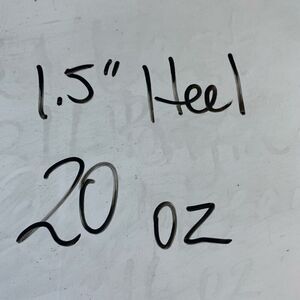 1.5" Heel
20 oz